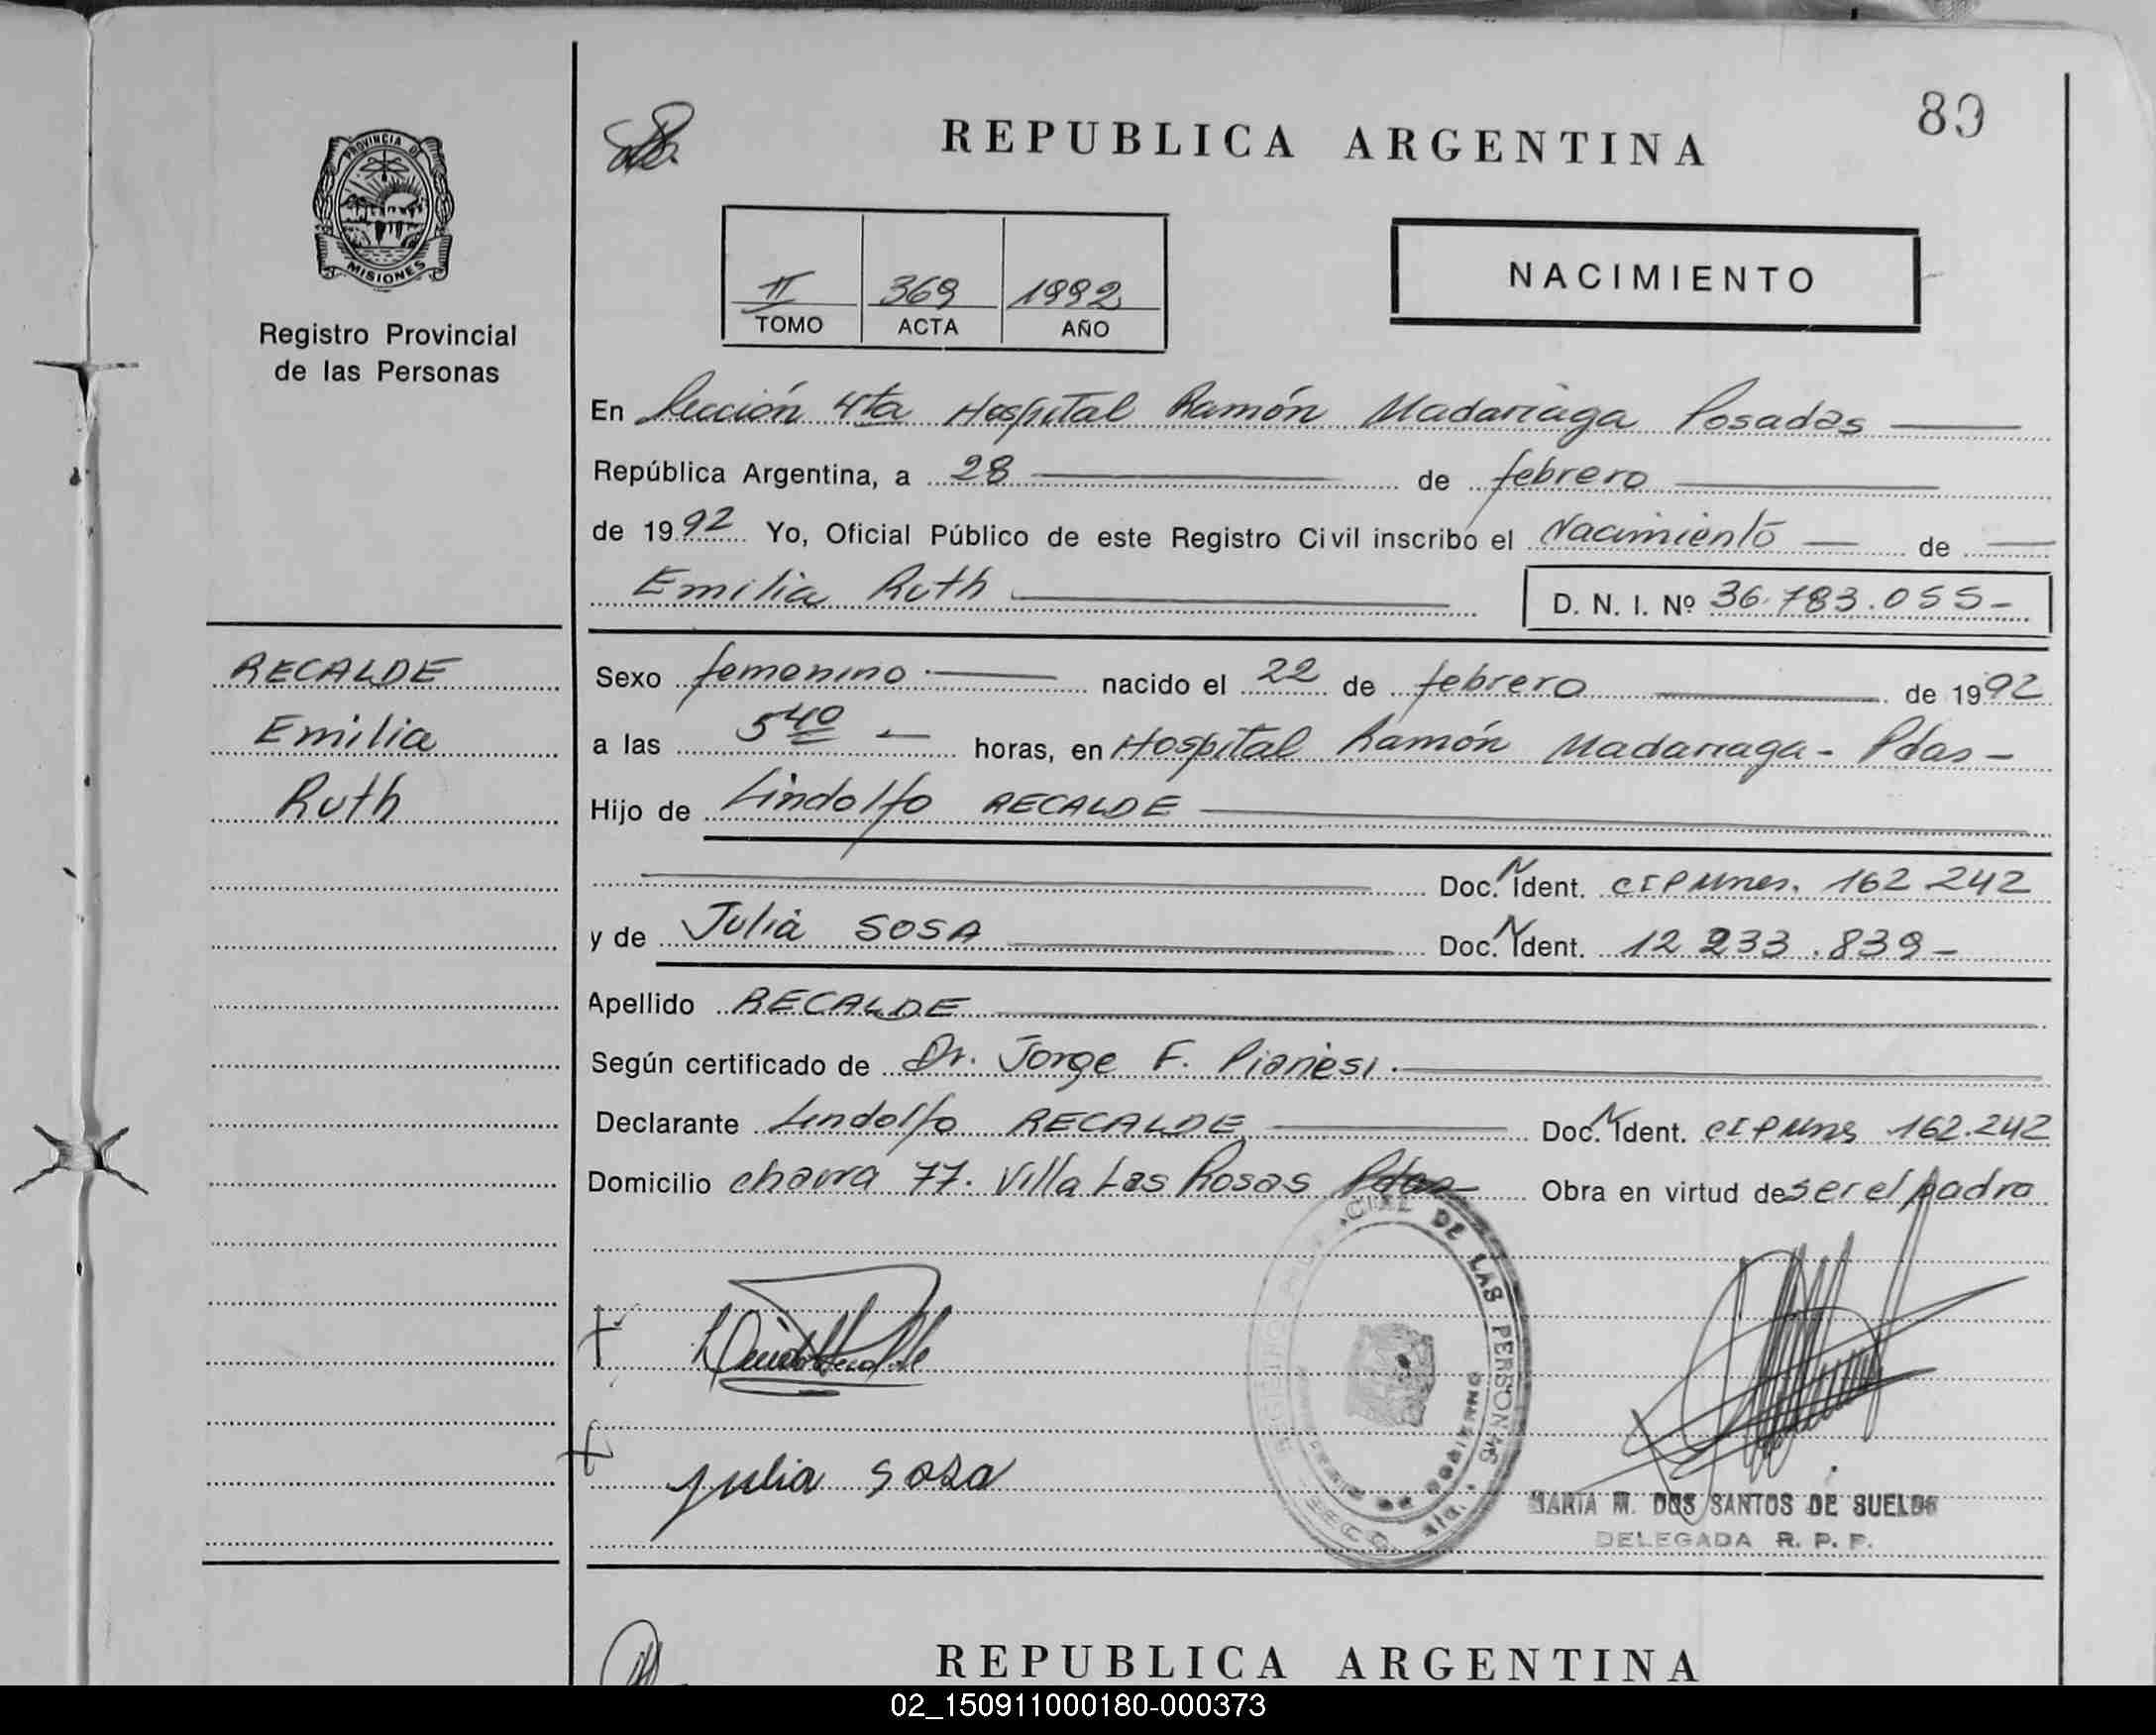 REPUBLICA ARGENTINA
80
PROVINCIA DE
MISIONES
Registro Provincial
de las Personas
II 369 1992
TOMO ACTA AÑO
NACIMIENTO
En Sección 4ta Hospital Ramón Madariaga Posadas
República Argentina, a 28 de febrero
de 1992 Yo, Oficial Público de este Registro Civil inscribo el Nacimiento de
Emilia Ruth D. N. I. Nº 36.783.055-
RECALDE
Emilia
Ruth
Sexo femenino nacido el 22 de febrero de 1992
a las 5 40 horas, en Hospital Ramón Madariaga - Pdas -
Hijo de Lindolfo RECALDE
Doc. N Ident. CIPMnes. 162 242
y de Julia SOSA Doc. N Ident. 12 233.839-
Apellido RECALDE
Según certificado de Dr. Jorge F. Pianesi.
Declarante Lindolfo RECALDE Doc. N Ident. CIPMns 162.242
Domicilio chacra 77. Villa Las Rosas Pdas Obra en virtud de ser el padre
DE LAS PERSONAS
julia sosa
MARIA M. DOS SANTOS DE SUELDO
DELEGADA R. P. P.
REPUBLICA ARGENTINA
02_150911000180-000373